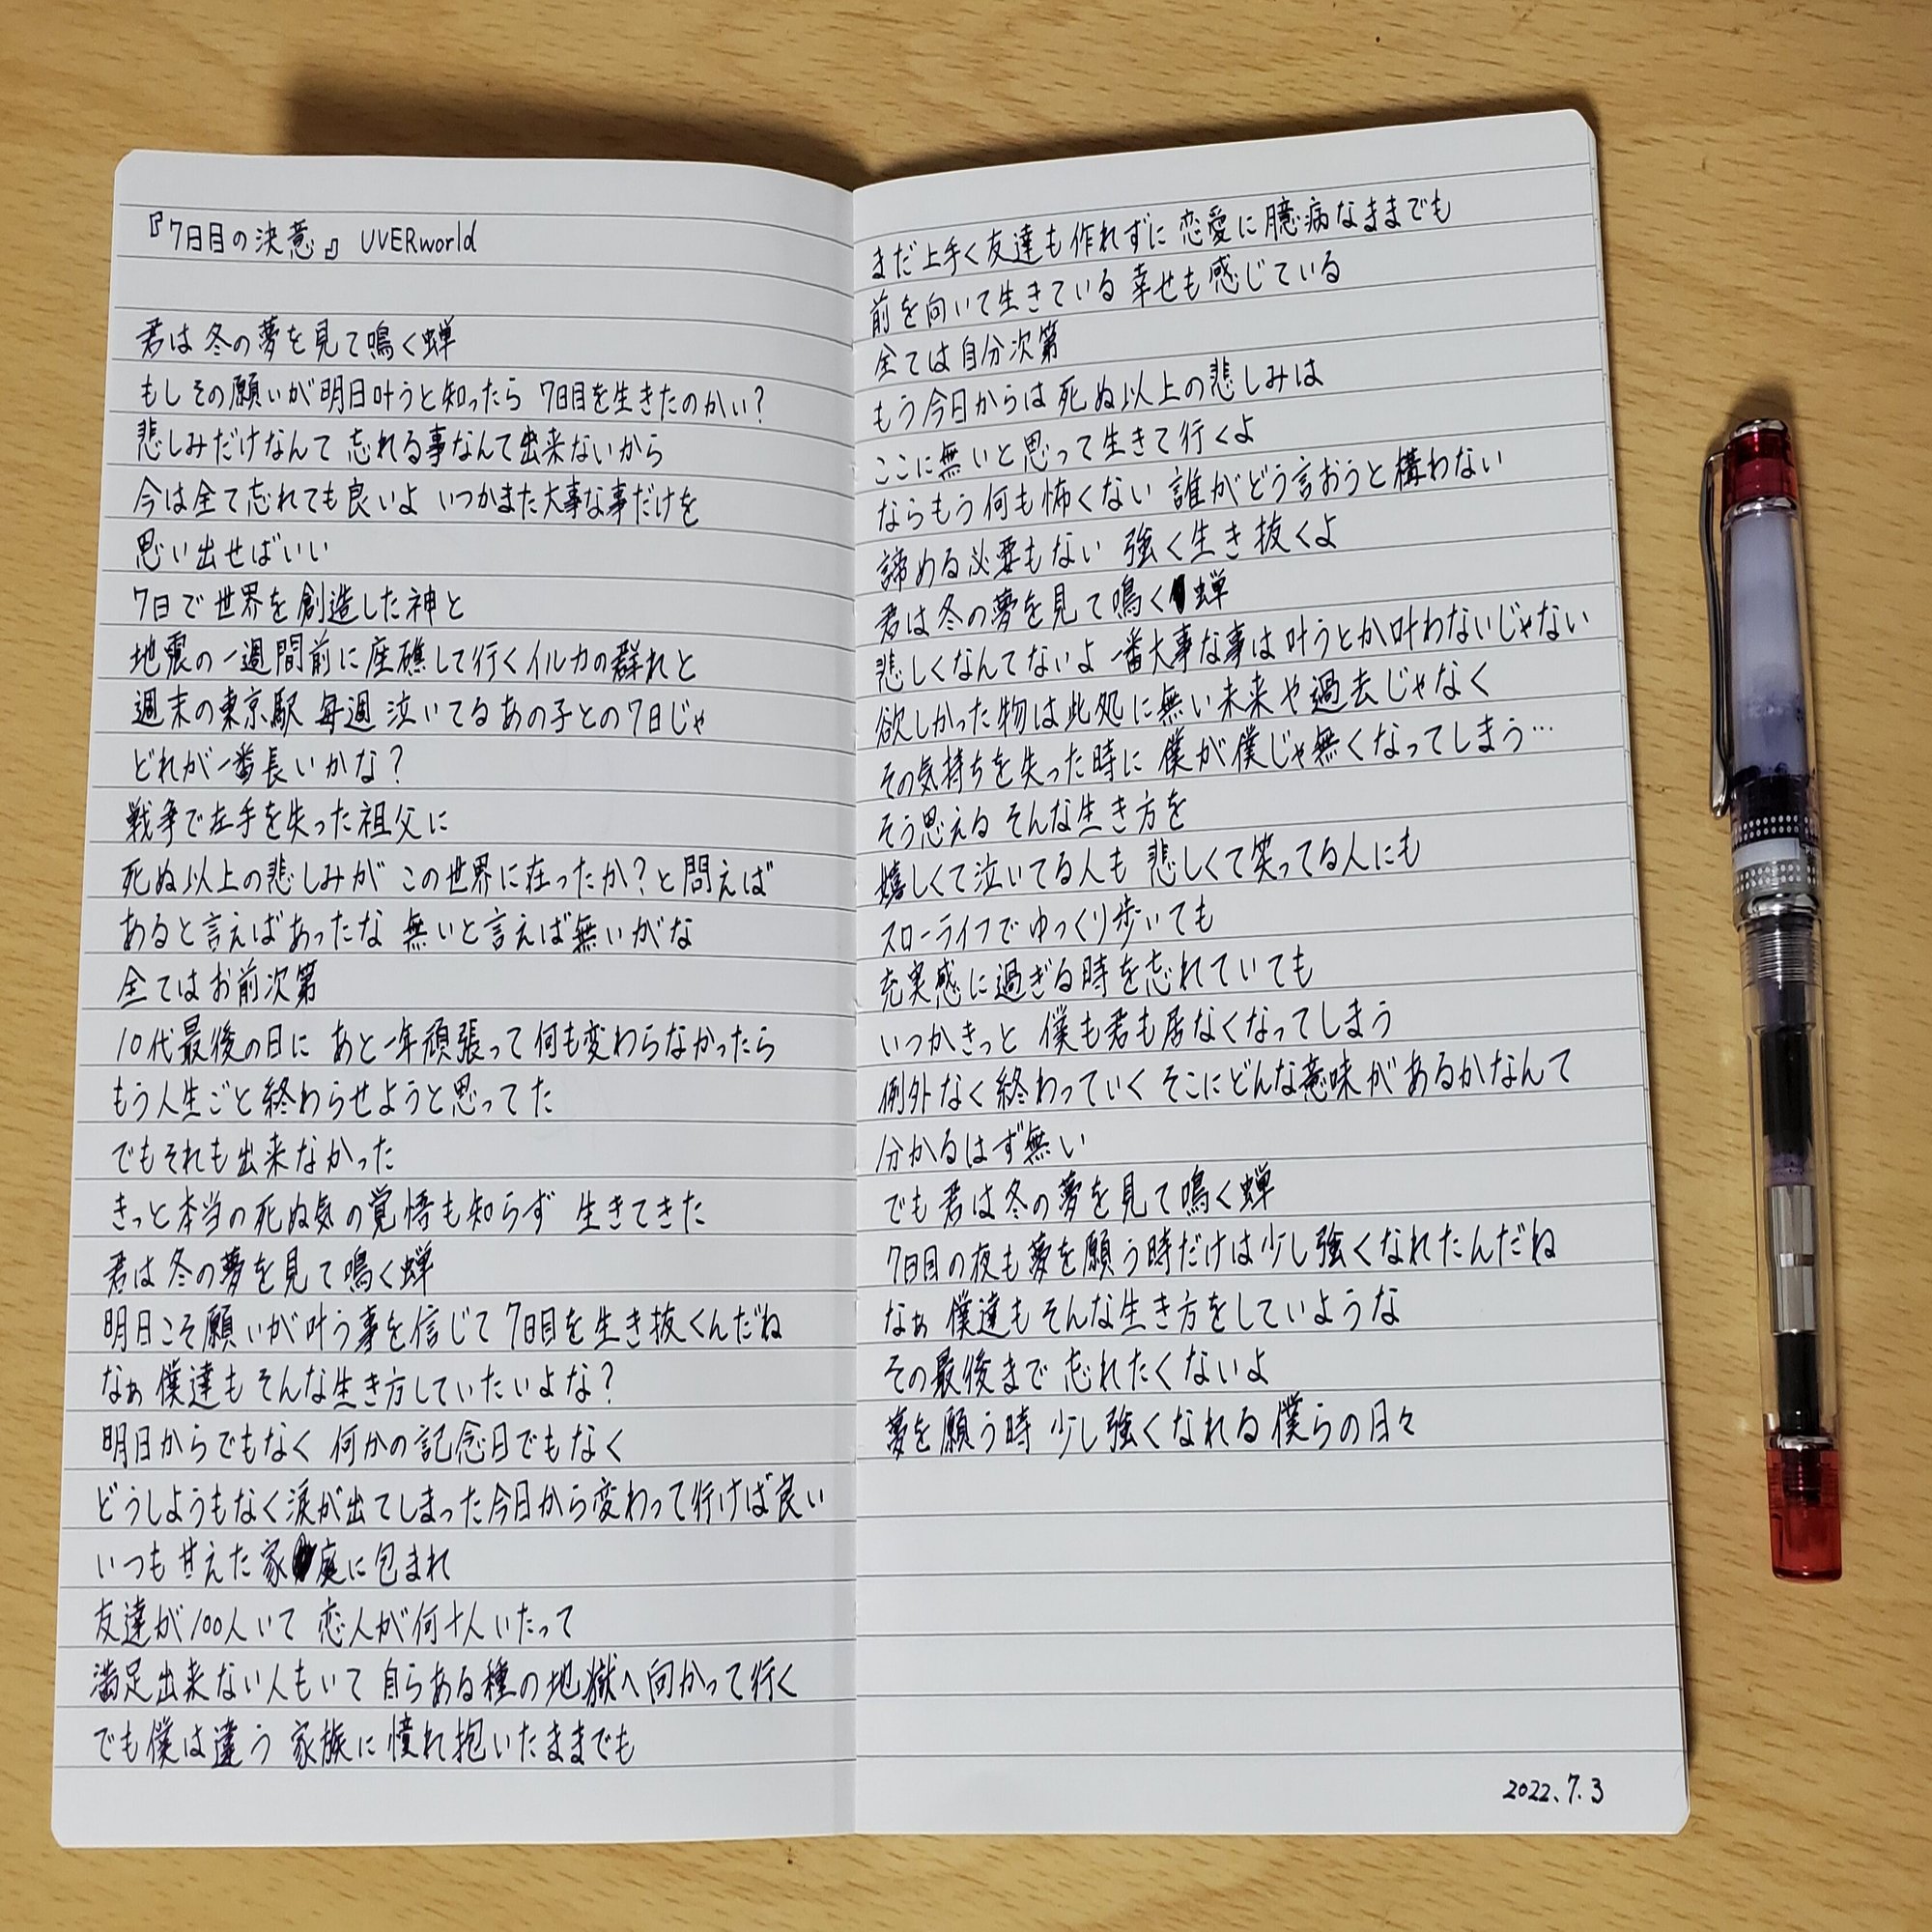 『7日目の決意』 UVERworld
君は冬の夢を見て鳴く蝉
もしその願いが明日叶うと知ったら 7日目を生きたのかい?
悲しみだけなんて 忘れる事なんて出来ないから
今は全て忘れても良いよ いつかまた大事な事だけを
思い出せばいい
7日で世界を創造した神と
地震の一週間前に座礁して行くイルカの群れと
週末の東京駅 毎週 泣いてるあの子との7日じゃ
どれが一番長いかな?
戦争で左手を失った祖父に
死ぬ以上の悲しみが この世界に在ったか?と問えば
あると言えばあったな 無いと言えば無いがな
全てはお前次第
10代最後の日に あと一年頑張って何も変わらなかったら
もう人生ごと終わらせようと思ってた
でもそれも出来なかった
きっと本当の死ぬ気の覚悟も知らず 生きてきた
君は冬の夢を見て鳴く蝉
明日こそ願いが叶う事を信じて 7日目を生き抜くんだね
なぁ 僕達も そんな生き方していたいよな?
明日からでもなく 何かの記念日でもなく
どうしようもなく涙が出てしまった今日から変わって行けば良い
いつも甘えた家庭に包まれ
友達が100人いて 恋人が何十人いたって
満足出来ない人もいて 自らある種の地獄へ向かって行く
でも僕は違う 家族に憧れ抱いたままでも
まだ上手く友達も作れずに 恋愛に臆病なままでも
前を向いて生きている 幸せも感じている
全ては自分次第
もう今日からは 死ぬ以上の悲しみは
ここに無いと思って生きて行くよ
ならもう何も怖くない 誰がどう言おうと構わない
諦める必要もない 強く生き抜くよ
君は冬の夢を見て鳴く蝉
悲しくなんてないよ 一番大事な事は叶うとか叶わないじゃない
欲しかった物は此処に無い未来や過去じゃなく
その気持ちを失った時に 僕が僕じゃ無くなってしまう…
そう思える そんな生き方を
嬉しくて泣いてる人も 悲しくて笑ってる人にも
スローライフで ゆっくり歩いても
充実感に過ぎる時を忘れていても
いつかきっと 僕も君も居なくなってしまう
例外なく終わっていく そこにどんな意味があるかなんて
分かるはず無い
でも君は冬の夢を見て鳴く蝉
7日目の夜も夢を願う時だけは少し強くなれたんだね
なぁ 僕達も そんな生き方をしていような
その最後まで 忘れたくないよ
夢を願う時 少し強くなれる 僕らの日々
2022.7.3